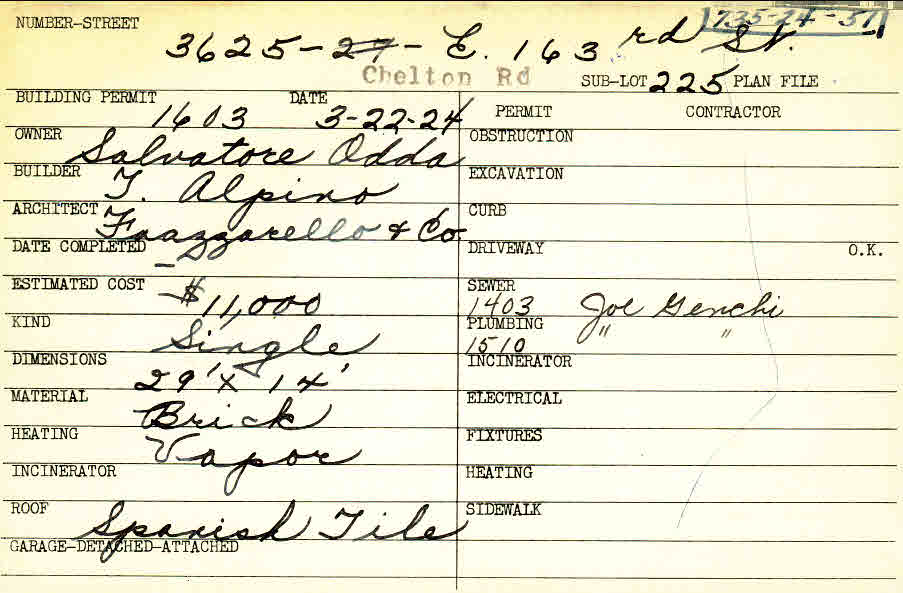 NUMBER-STREET 735-24-57
3625-27- E. 163 rd St.
Chelton Rd
SUB-LOT 225 PLAN FILE
BUILDING PERMIT 1603 DATE 3-22-24
OWNER Salvatore Odda
BUILDER T. Alpino
ARCHITECT Frazzarello & Co.
DATE COMPLETED —
ESTIMATED COST $11,000
KIND Single
DIMENSIONS 29' X 14'
MATERIAL Brick
HEATING Vapor
INCINERATOR
ROOF Spanish Tile
GARAGE-DETACHED-ATTACHED
PERMIT CONTRACTOR
OBSTRUCTION
EXCAVATION
CURB
DRIVEWAY O.K.
SEWER 1403 Joe Genchi
PLUMBING 1510 " "
INCINERATOR
ELECTRICAL
FIXTURES
HEATING
SIDEWALK